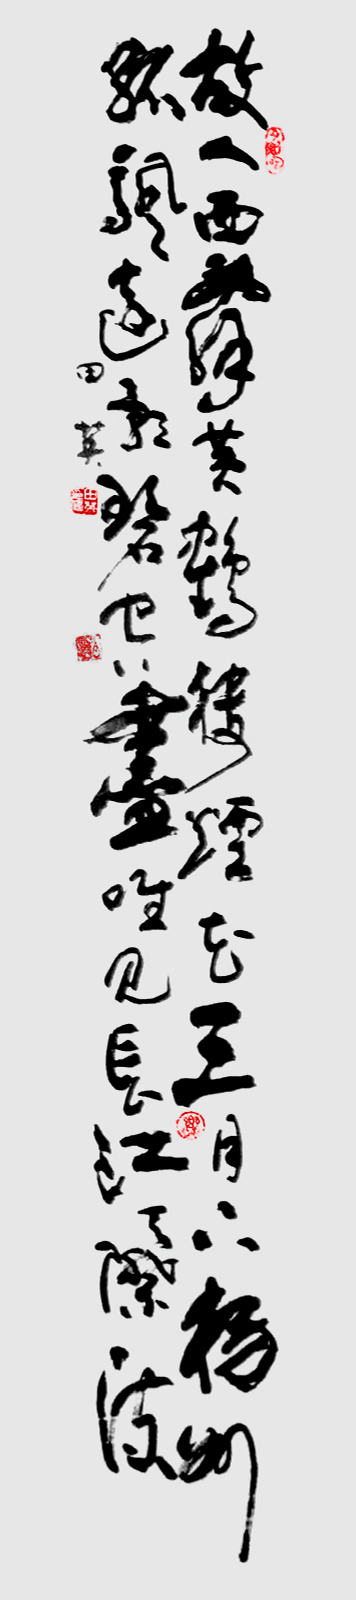 故人西辭黄鶴樓煙花三月下揚州
孤颿遠影碧空盡唯見長江天際流
田英